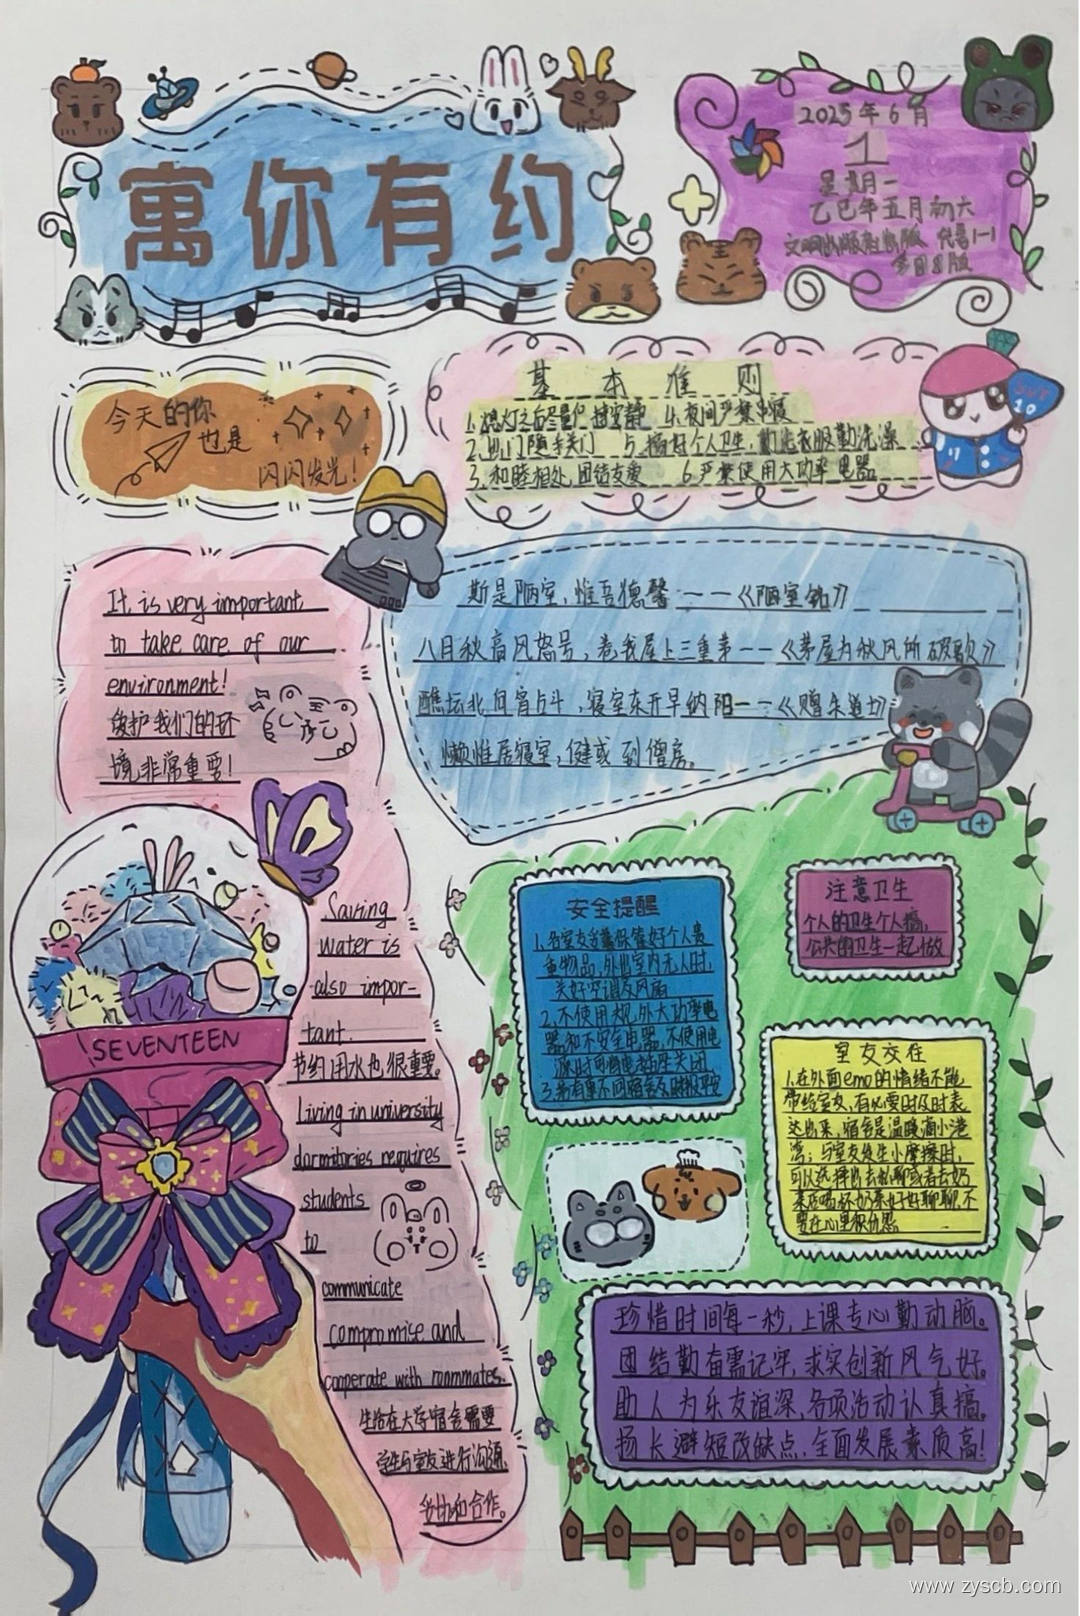 寓你有约
2025年6月
1
星期一
乙巳年五月初六
代号1-1
今日8版
今天的你
也是
闪闪发光!
基本准则
1.熄灯之后尽量保持安静 4.夜间严禁
2.出门随手关门 5.搞好个人卫生,勤洗衣服勤洗澡
3.和睦相处,团结友爱 6.严禁使用大功率电器
It is very important
to take care of our
environment!
爱护我们的环
境非常重要!
斯是陋室,惟吾德馨——《陋室铭》
八月秋高风怒号,卷我屋上三重茅——《茅屋为秋风所破歌》
醮坛北向宵占斗,寝室东开早纳阳——《赠朱道士》
懒惟居寝室,健或到僧房。
SVT
10
Saving
water is
also impor-
tant.
节约用水也很重要。
Living in university
dormitories requires
students
to
communicate
compromise and
cooperate with roommates.
生活在大学宿舍需要
学生与室友进行沟通、
妥协和合作。
SEVENTEEN
安全提醒
1.各室友请保管好个人贵
重物品,外出室内无人时,
关好空调及风扇
2.不使用规外大功率电
器和不安全电器,不使用电
源时可将电插座关闭
注意卫生
个人的卫生个人搞,
公共的卫生一起做
室友交往
1.在外面emo的情绪不能
带给室友,有必要时及时表
达出来,宿舍是温暖滴小港
湾;与室友发生小摩擦时,
可以选择出去私聊或者去奶
茶店喝杯奶茶好好聊聊,不
要在心里
珍惜时间每一秒,上课专心勤动脑。
团结勤奋需记牢,求实创新风气好。
助人为乐友谊深,各项活动认真搞。
扬长避短改缺点,全面发展素质高!
www.zyscb.com